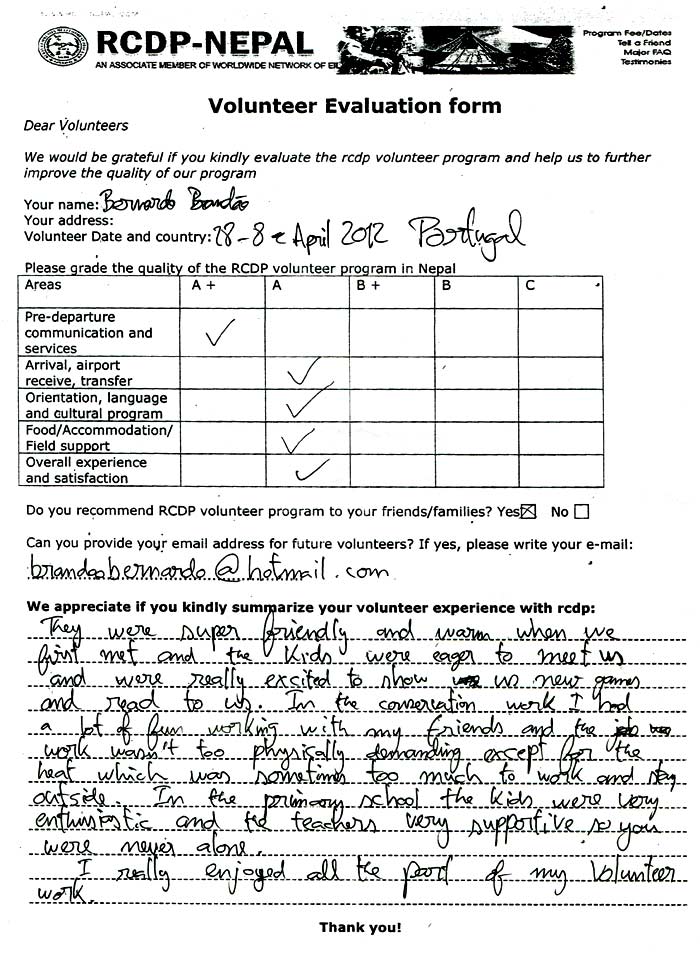 RCDP-NEPAL
AN ASSOCIATE MEMBER OF WORLDWIDE NETWORK OF
Program Fee/Dates
Tell a Friend
Major FAQ
Testimonies
Volunteer Evaluation form
Dear Volunteers
We would be grateful if you kindly evaluate the rcdp volunteer program and help us to further
improve the quality of our program
Your name: Bernardo Brandão
Your address:
Volunteer Date and country: 28-8 April 2012 Portugal
Please grade the quality of the RCDP volunteer program in Nepal
Areas A + A B + B C
Pre-departure
communication and
services
Arrival, airport
receive, transfer
Orientation, language
and cultural program
Food/Accommodation/
Field support
Overall experience
and satisfaction
Do you recommend RCDP volunteer program to your friends/families? Yes No
Can you provide your email address for future volunteers? If yes, please write your e-mail:
brandaobernardo@hotmail.com
We appreciate if you kindly summarize your volunteer experience with rcdp:
They were super friendly and warm when we
first met and the kids were eager to meet us
and were really excited to show us new games
and read to us. In the conservation work I had
a lot of fun working with my friends and the
work wasn't too physically demanding except for the
heat which was sometimes too much to work and stay
outside. In the primary school the kids were very
enthusiastic and the teachers very supportive so you
were never alone.
I really enjoyed all the part of my Volunteer
work.
Thank you!